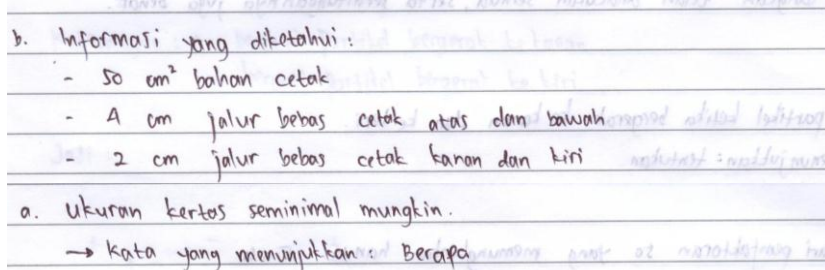 b. Informasi yang diketahui :
- 50 cm² bahan cetak
- 4 cm jalur bebas cetak atas dan bawah
- 2 cm jalur bebas cetak kanan dan kiri
a. Ukuran kertas seminimal mungkin.
→ Kata yang menunjukkan Berapa